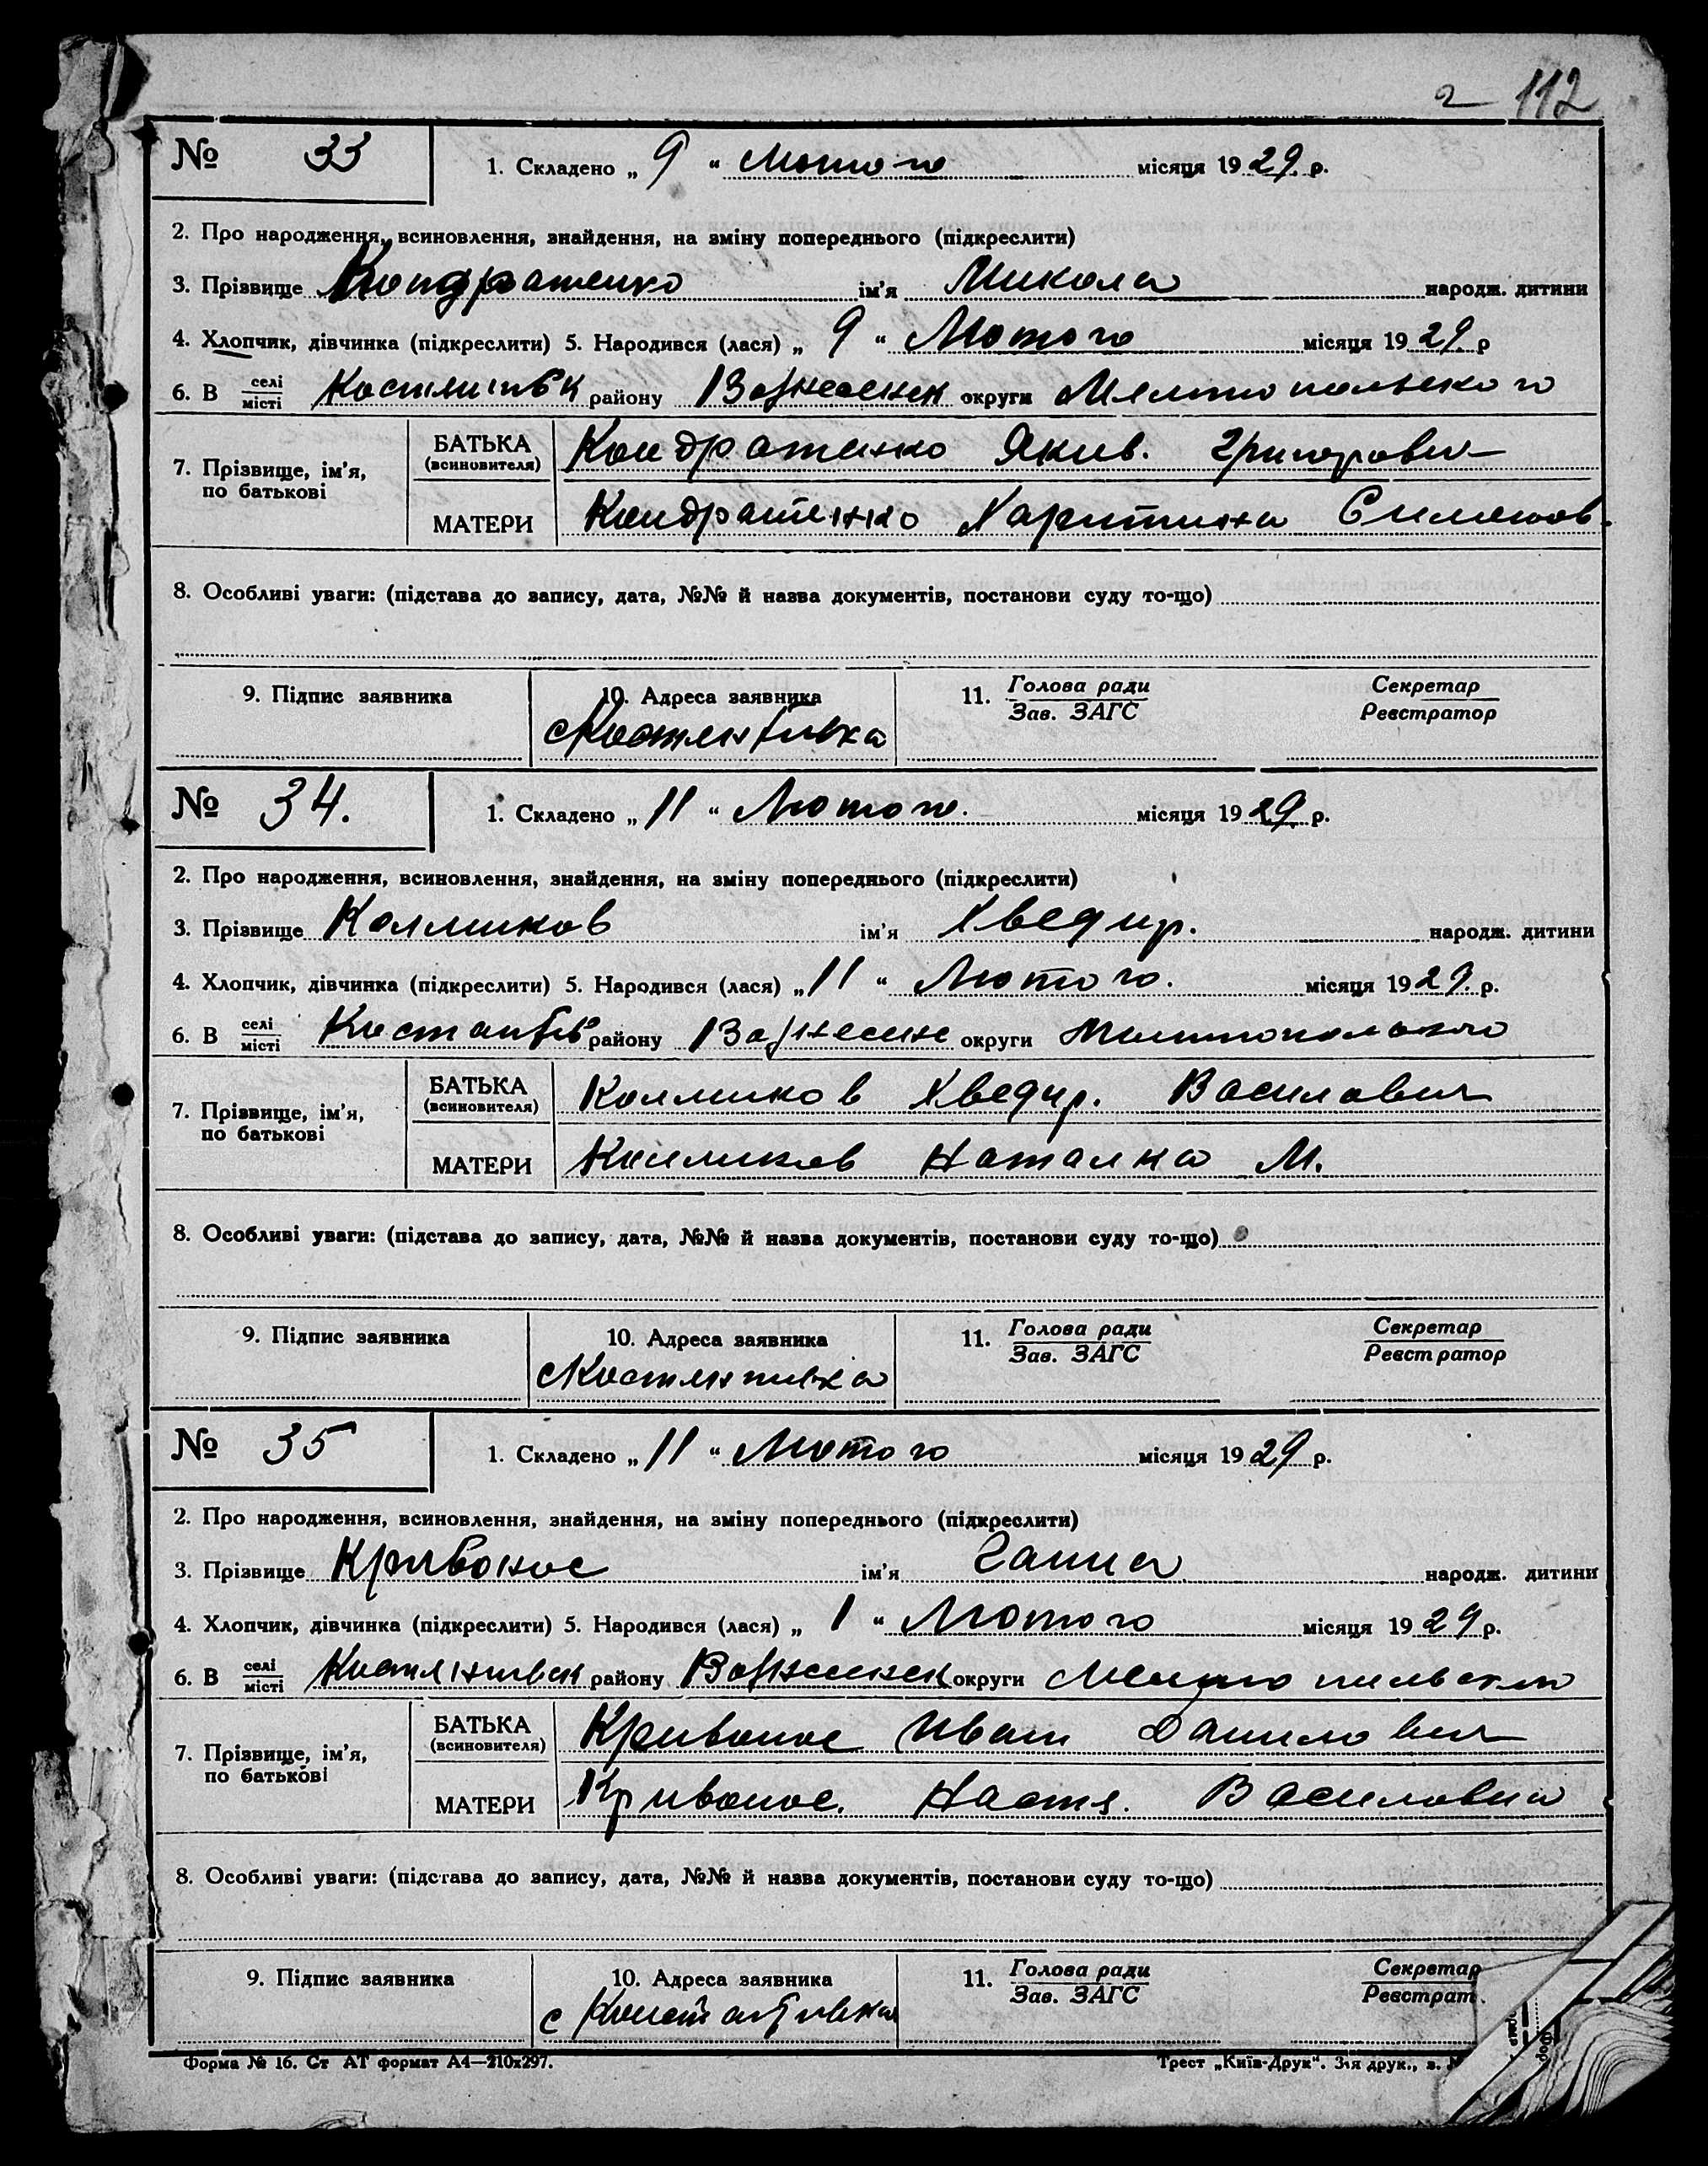 2 112
№ 33 1. Складено „ 9 “ Лютого місяця 1929 р.
2. Про народження, всиновлення, знайдення, на зміну попереднього (підкреслити)
3. Прізвище Кондратенко ім'я Микола народж. дитини
4. Хлопчик, дівчинка (підкреслити) 5. Народився (лася) „ 9 “ Лютого місяця 1929 р
6. В селі місті району округи Мелітопольского
7. Прізвище, ім'я, по батькові
БАТЬКА (всиновителя) Кондратенко Якив. Григорович
МАТЕРИ Кондратенко Харитина Симонов.
8. Особливі уваги: (підстава до запису, дата, №№ й назва документів, постанови суду то-що)
9. Підпис заявника 10. Адреса заявника 11. Голова ради Секретар
Зав. ЗАГС Реєстратор
№ 34. 1. Складено „ 11 “ Лютого. місяця 1929 р.
2. Про народження, всиновлення, знайдення, на зміну попереднього (підкреслити)
3. Прізвище Калмиков ім'я Хведир. народж. дитини
4. Хлопчик, дівчинка (підкреслити) 5. Народився (лася) „ 11 “ Лютого. місяця 1929. р.
6. В селі місті району округи
7. Прізвище, ім'я, по батькові
БАТЬКА (всиновителя) Калмиков Хведир. Василович
МАТЕРИ Калмиков Наталка М.
8. Особливі уваги: (підстава до запису, дата, №№ й назва документів, постанови суду то-що)
9. Підпис заявника 10. Адреса заявника 11. Голова ради Секретар
Зав. ЗАГС Реєстратор
№ 35 1. Складено „ 11 “ Лютого місяця 1929 р.
2. Про народження, всиновлення, знайдення, на зміну попереднього (підкреслити)
3. Прізвище Кривонос ім'я Ганна народж. дитини
4. Хлопчик, дівчинка (підкреслити) 5. Народився (лася) „ 1 “ Лютого місяця 1929 р.
6. В селі місті району округи
7. Прізвище, ім'я, по батькові
БАТЬКА (всиновителя) Кривонос Иван Данилович
МАТЕРИ Кривонос. Настя. Василовна
8. Особливі уваги: (підстава до запису, дата, №№ й назва документів, постанови суду то-що)
9. Підпис заявника 10. Адреса заявника 11. Голова ради Секретар
с Зав. ЗАГС Реєстрат
Форма № 16. Ст АТ формат А4—210x297. Трест „Київ-Друк“. 3-я друк., з.